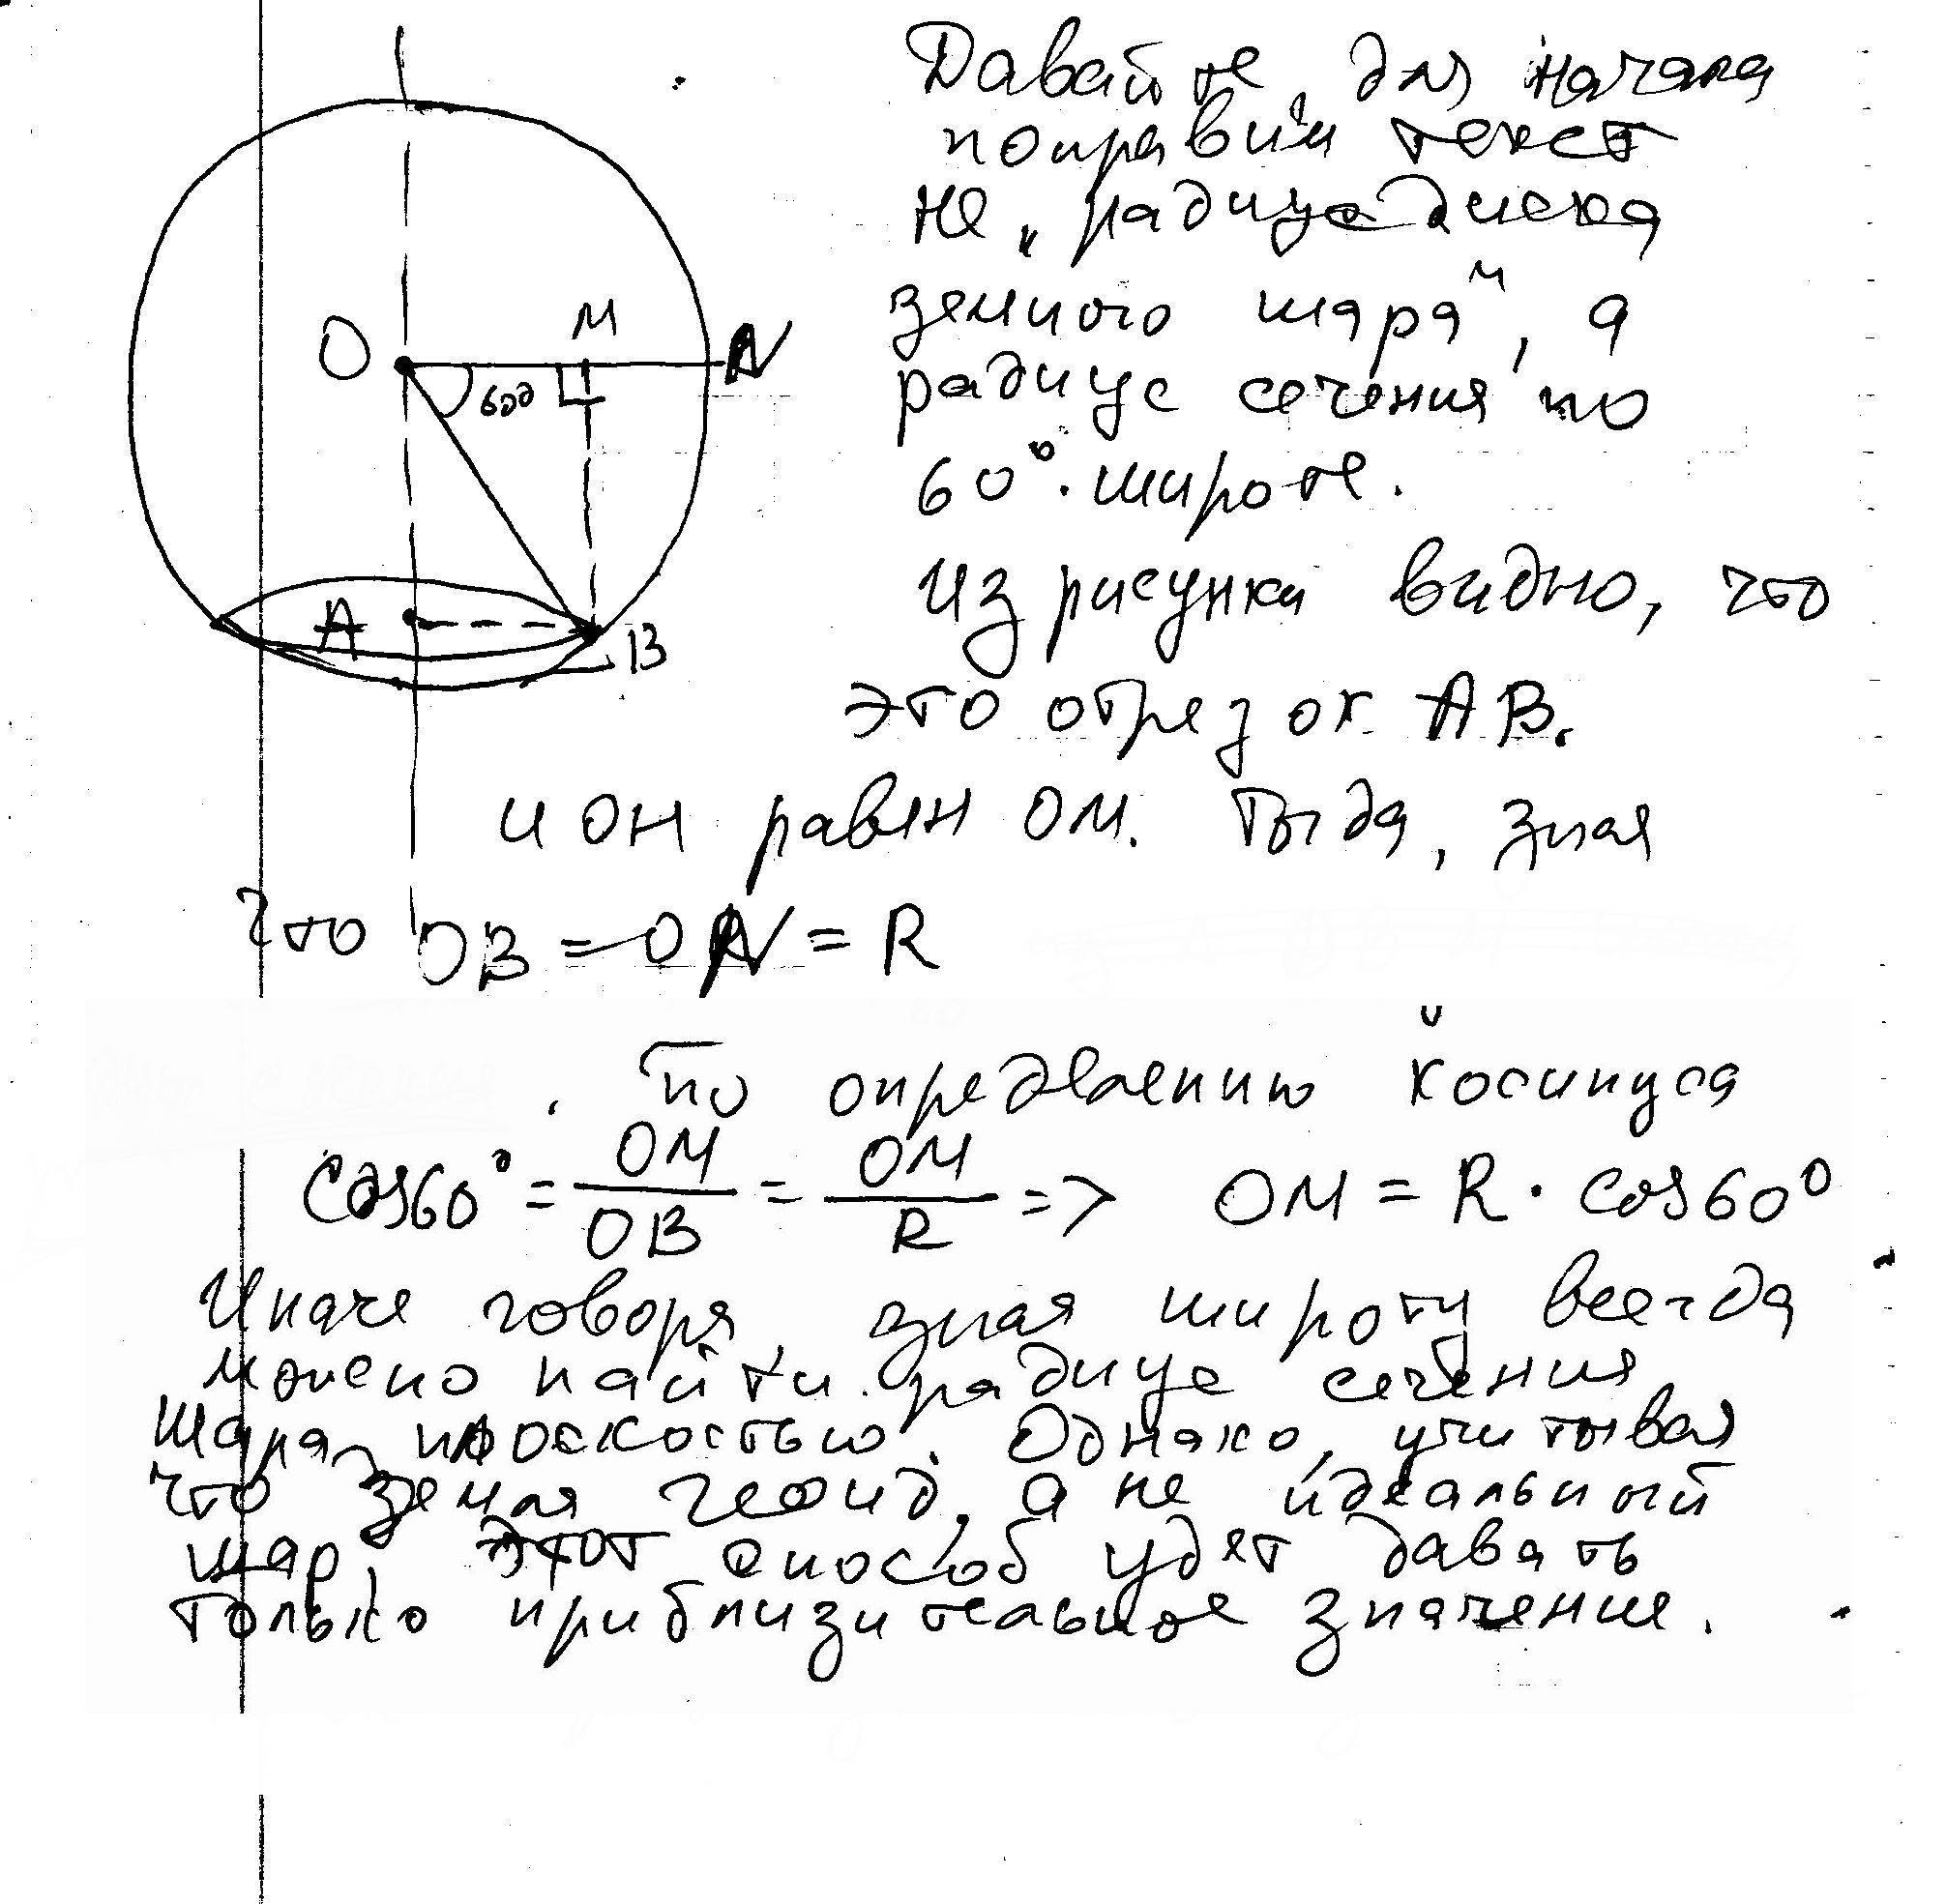 Давайте, для начала
поправим текст
не „радиус диска
земного шара", а
радиус сечения по
60° широте.
O
M
N
60°
A
B
Из рисунка видно, что
это отрезок AB.
и он равен OM. Тогда, зная
что OB = ON = R
По определению косинуса
cos60° = OM/OB = OM/R => OM = R · cos60°
Иначе говоря, зная широту всегда
можно найти радиус сечения
шара плоскостью. Однако, учитывая
что Земля геоид, а не идеальный
шар, этот способ удет давать
только приблизительное значение.